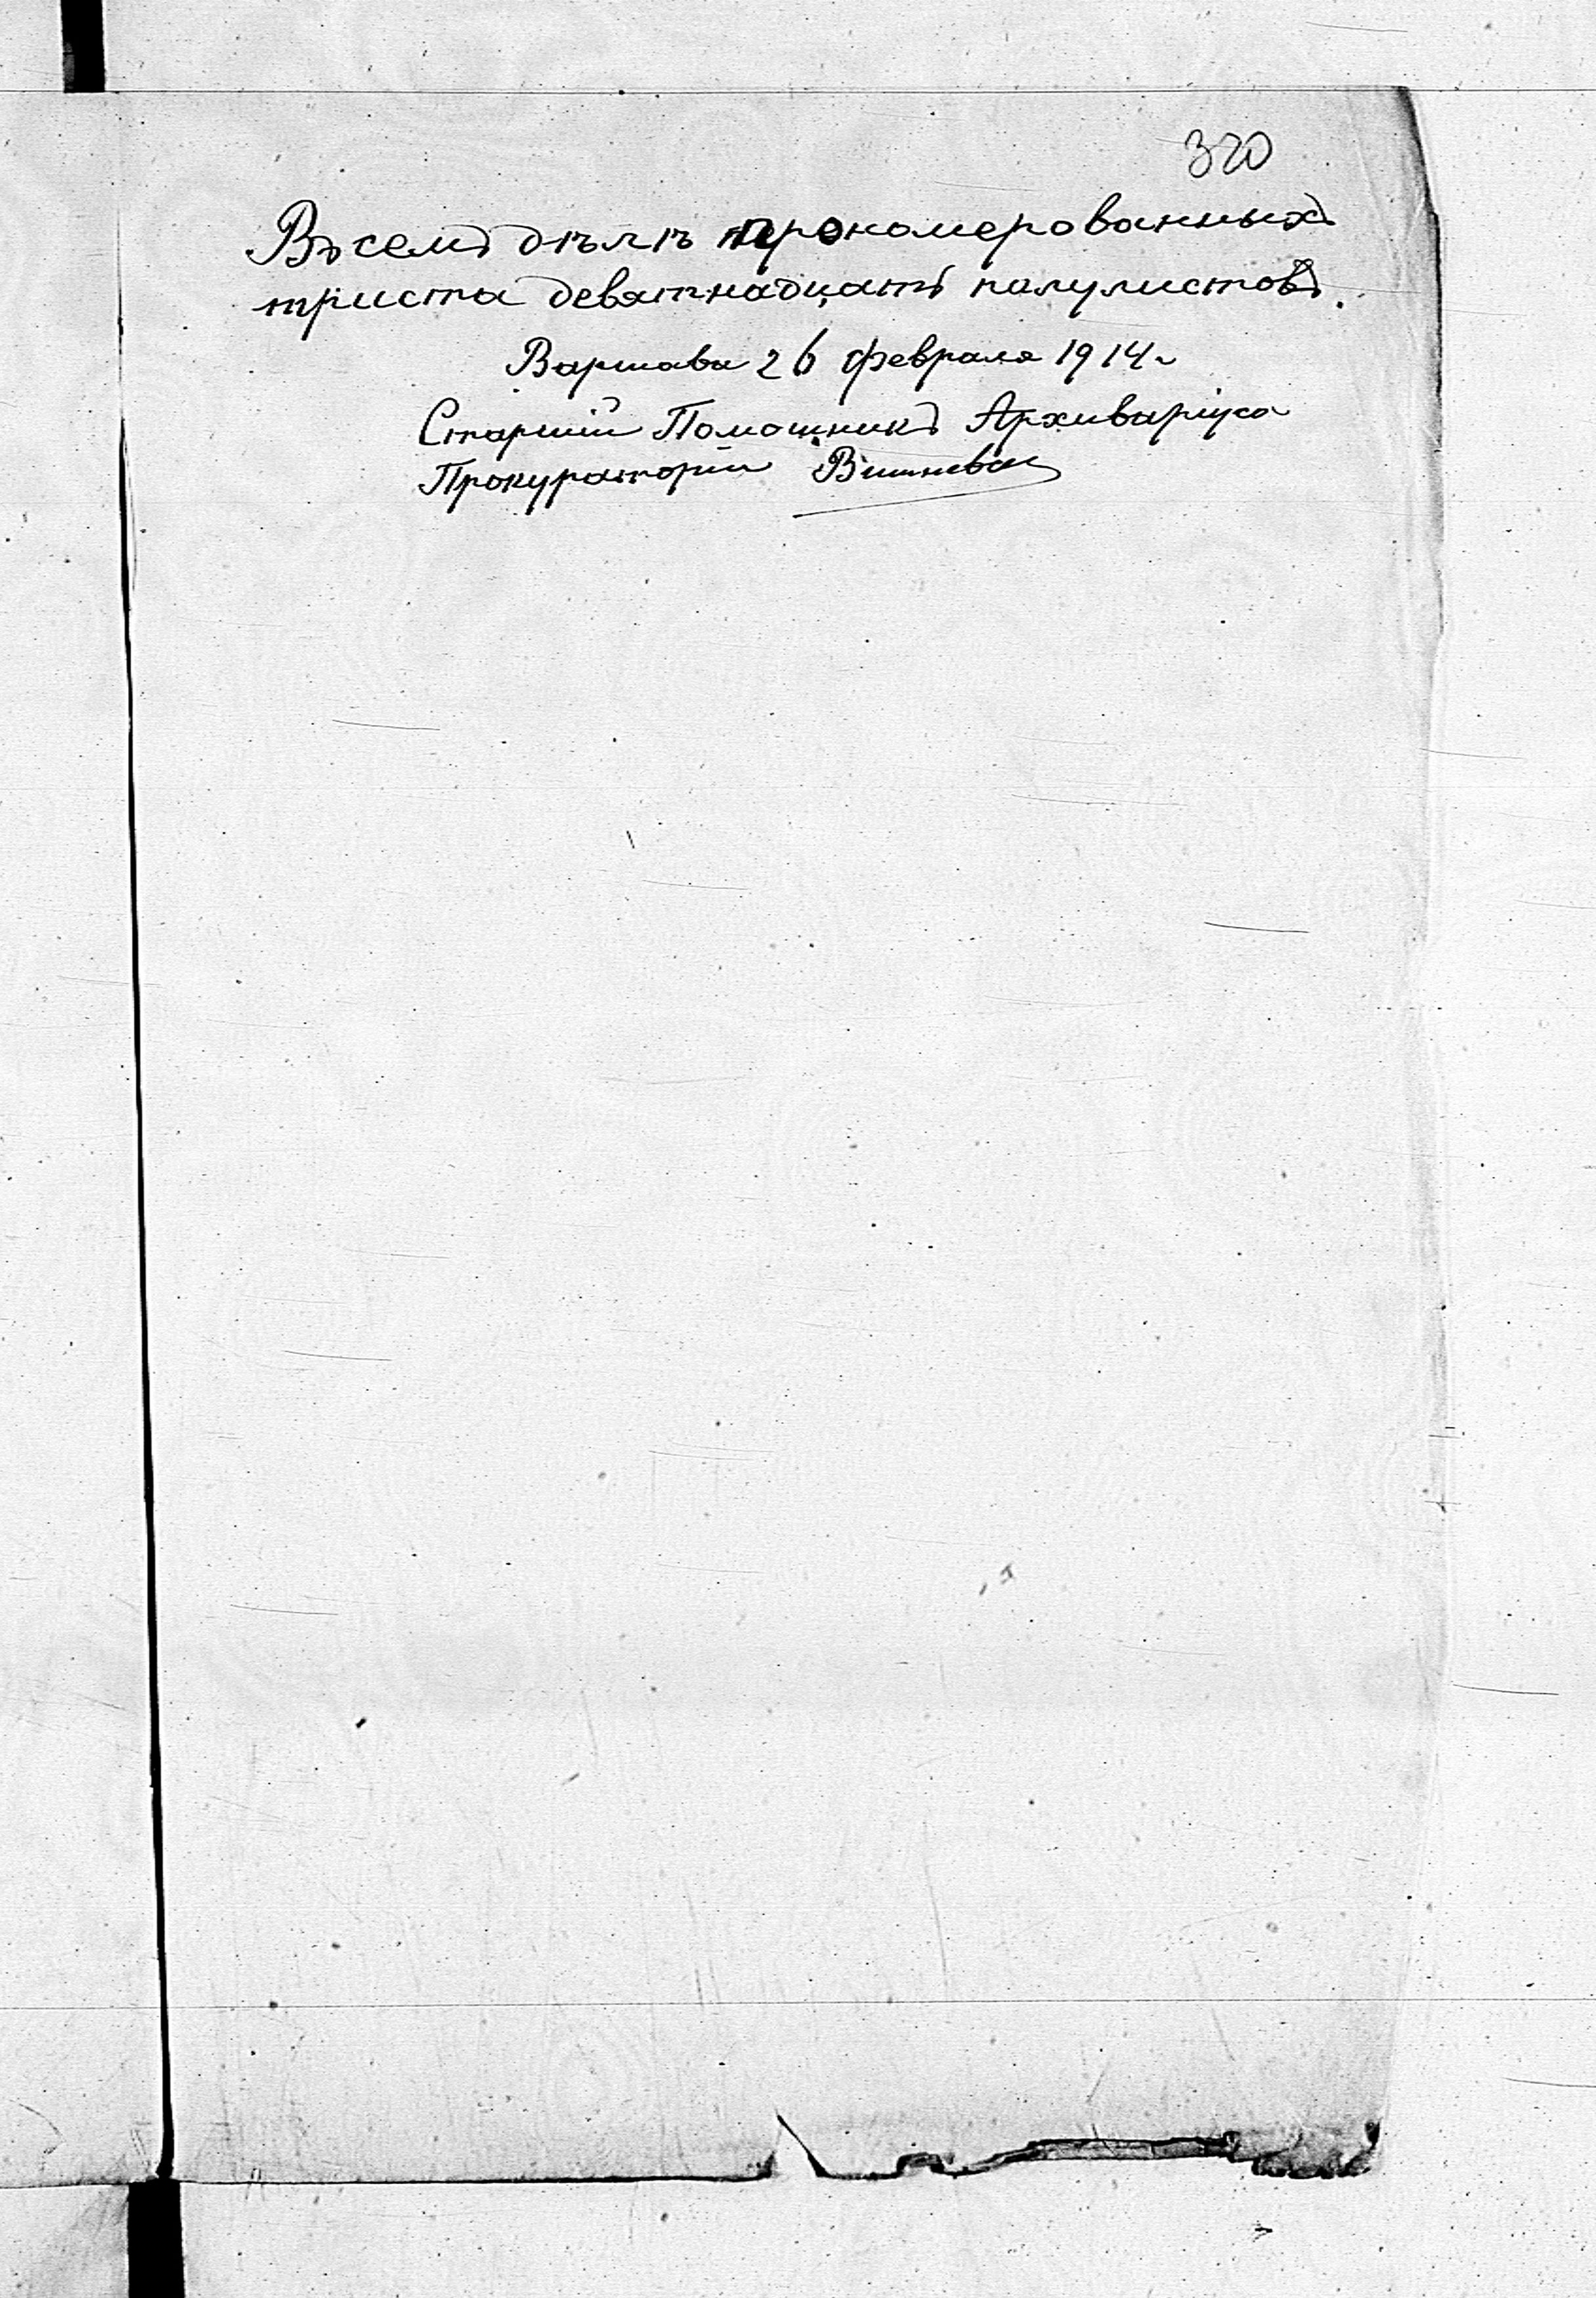 320
Въ семъ дѣлѣ прономерованныхъ
триста девятнадцать полулистовъ.
Варшава 26 февраля 1914 г.
Старшій Помощникъ Архиваріуса
Прокураторіи